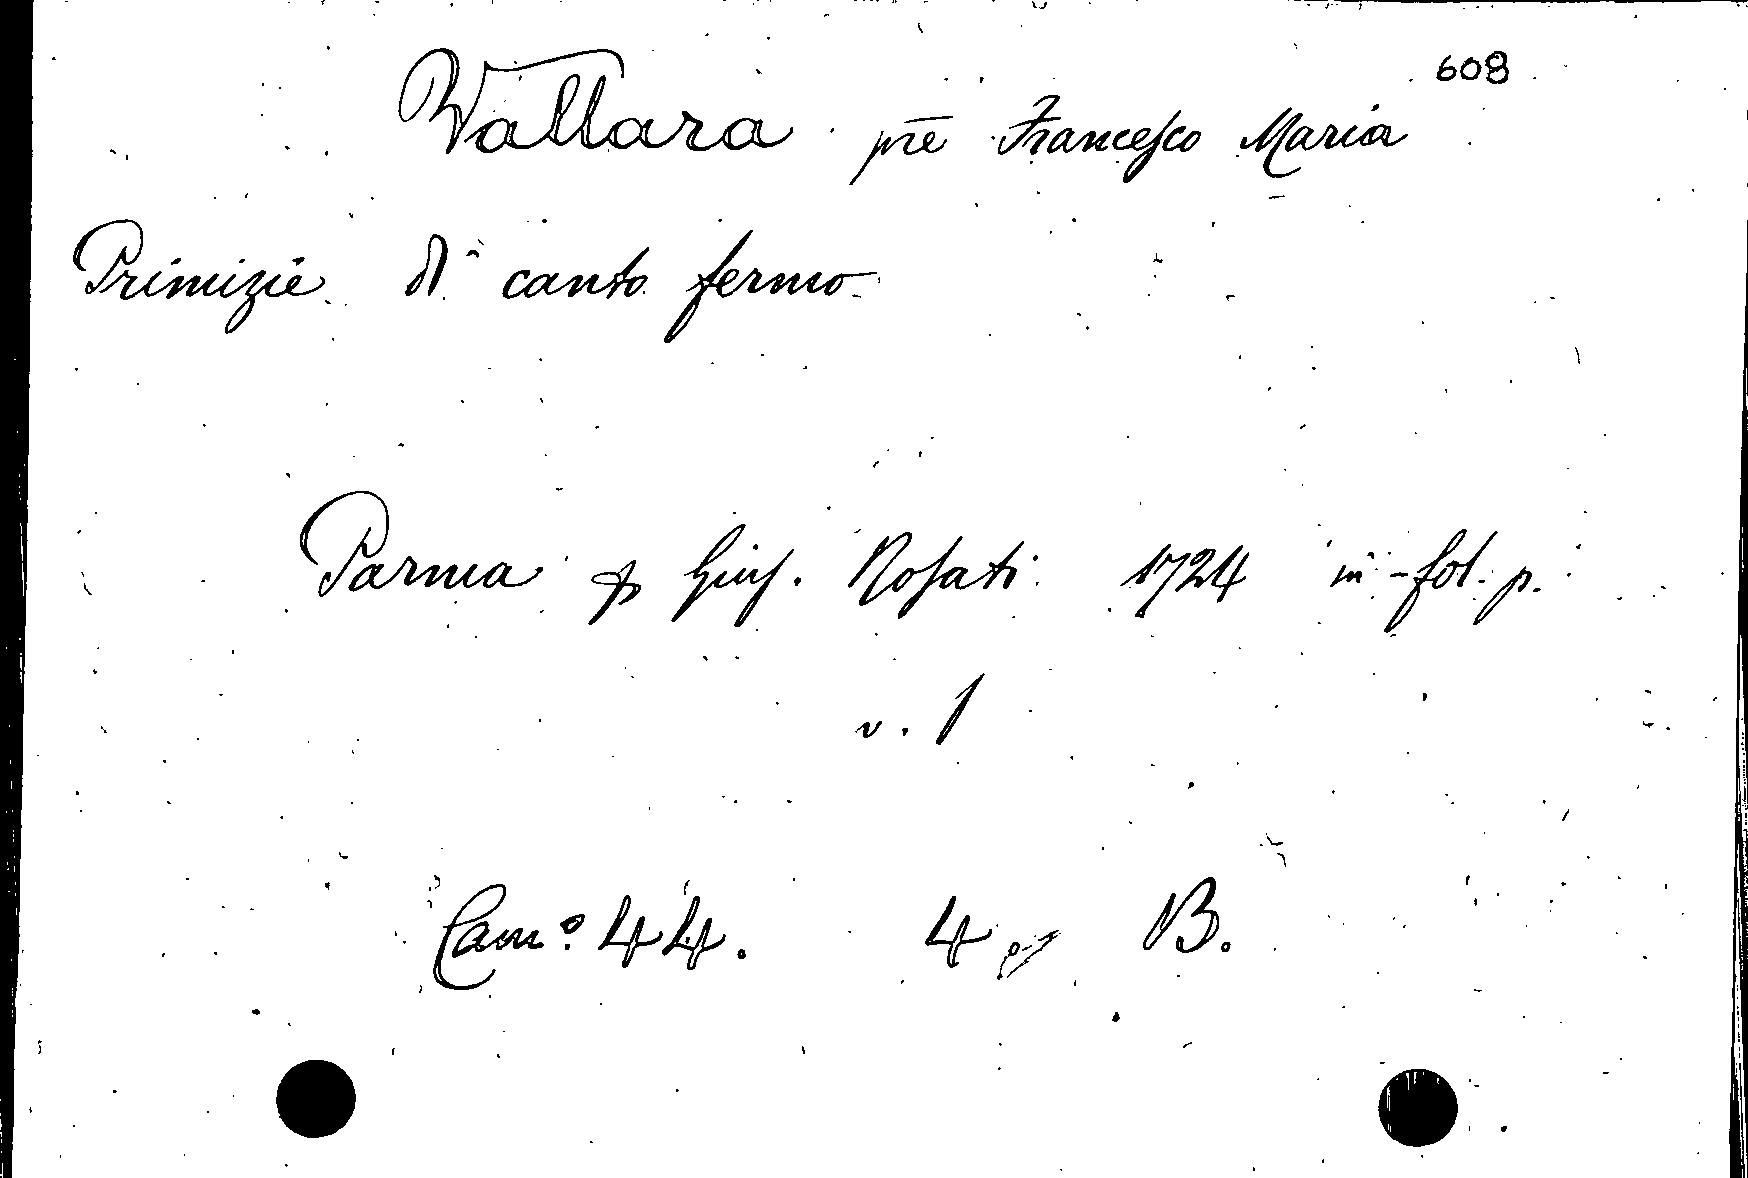 608
Vallara prē Francesco Maria
Primizie di canto fermo
Parma p Gius. Rosati 1724 in-fol. p.
v. 1
Cam.º 44. 4 B.